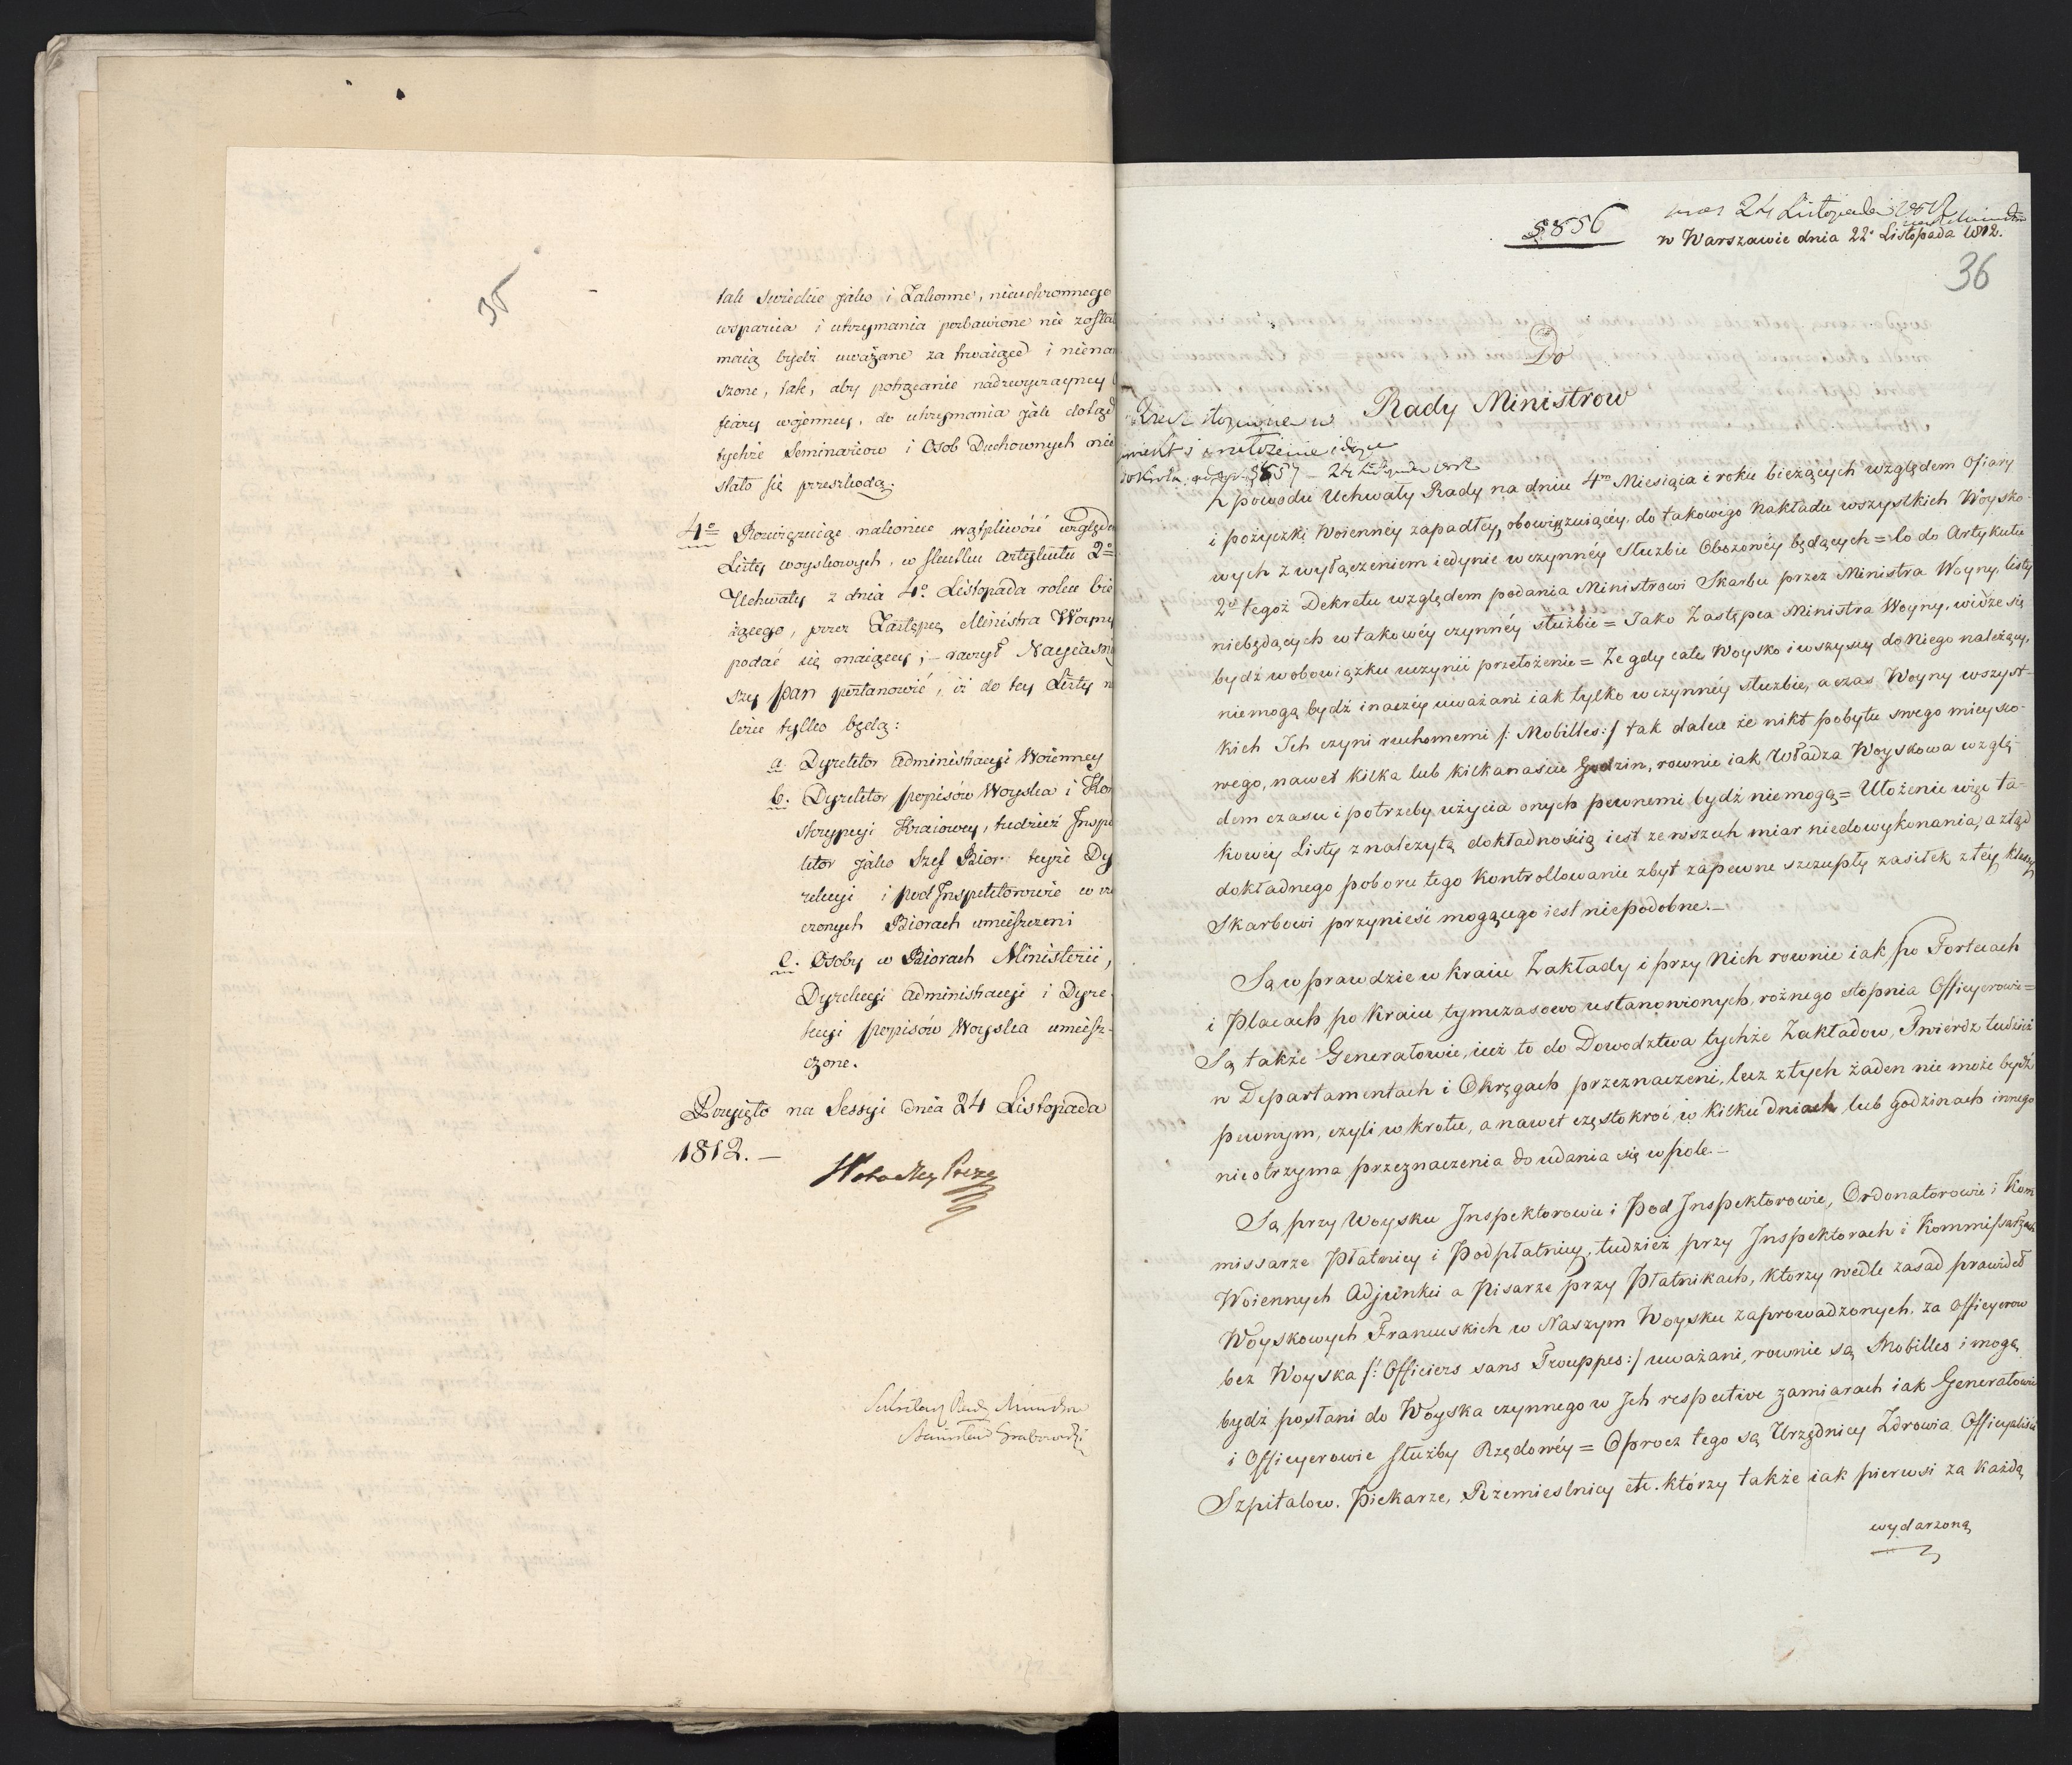 35
tak świeckie jako i Zakonne, nieuchronnego
wsparcia i utrzymania pozbawione nie zostały
maią bydź uważane za trwaiące i niena
szone, tak, aby potrącanie nadzwyczayney
fiary wojenney, do utrzymania jak dotąd
tychże Seminariow i Osob Duchownych nie
stało się przeszkodą.
4o Rozwiązuiąc nakoniec wątpliwość względem
Listy woyskowych, w skutku artykułu 2o
Uchwały z dnia 4o Listopada roku bie
żącego, przez Zastępcę Ministra Woyny
podać się maiącey; – raczył Nayiaśniey
szy Pan postanowić, iż do tey Listy
tylko będą:
a. Dyrektor Administracyi Woienney
b. Dyrektor popisów Woyska i Kon
skrypcyi Kraiowey, tudzież Inspe
ktor jako Szef Biór: teyże Dy
rekcyi i pod Inspektorowie w
czonych Biorach umieszczeni
c. Osoby w Biorach Ministerii,
Dyrekcyi Administracyi i Dyre
kcyi popisów Woyska umiesz-
czone.
Przyięto na Sessyi dnia 24 Listopada
1812. –
Sekretarz Rady Ministrów
Stanisław Grabowski
8856
24 Listopada
w Warszawie dnia 22o Listopada 1812.
36
Do
Rady Ministrow
24 Listopada
Z powodu Uchwały Rady na dniu 4m Miesiąca i roku bieżących względem Ofiary
i pożyczki Woienney zapadłey, obowiązuiącéy do takowego Nakładu wszystkich Woysko-
wych z wyłączeniem iedynie w czynnéy służbie Obozowéy będących = co do Artykułu
2o tegoż Dekretu względem podania Ministrowi Skarbu przez Ministra Woyny, listy
niebędących w takowéy czynnéy służbie = Jako Zastępca Ministra Woyny, widze się
bydź w obowiązku uczynić przełożenie = Że gdy całe Woysko i wszyscy do Niego należący,
niemogą bydź inaczéy uważani iak tylko w czynnéy służbie, a czas Woyny wszyst-
kich Ich czyni ruchomemi /: Mobilles :/ tak daleu że nikt pobytu swego mieysco-
wego, nawet kilka lub kilkanaście Godzin, rownie iak Władza Woyskowa wzglę-
dem czasu i potrzeby użycia onych pewnemi bydź niemogą = Ułożenie więc ta-
kowéy Listy z należytą dokładnością iest ze wszech miar niedowykonania, a ztąd
dokładnego poboru tego Kontrollowanie zbyt zapewne szczupły zasiłek z téy klassy
Skarbowi przynieść mogącego iest niepodobne. –
Są w prawdzie w Kraiu Zakłady i przy Nich rownie iak po Fortecach
i Placach po Kraiu tymczasowo ustanowionych, rożnego stopnia Officyerowie =
Są także Generałowie, iuż to do Dowodztwa tychże Zakładow, Twierdz tudzież
w Departamentach i Okręgach przeznaczeni, lecz z tych żaden nie może bydź
pewnym, czyli w krotce, a nawet częstokroć, w kilku dniach lub godzinach innego
nie otrzyma przeznaczenia do udania się w pole. –
Są przy Woysku Inspektorowie i Pod Inspektorowie, Ordonatorowie i Kom
missarze Płatnicy i Podpłatnicy, tudzież przy Inspektorach i Kommissarzach
Woiennych Adjunkci a Pisarze przy Płatnikach, ktorzy wedle zasad prawideł
Woyskowych Francuskich w Naszym Woysku zaprowadzonych, za Officyerow
bez Woyska /: Officiers sans Trouppes :/ uważani, rownie są Mobilles i mogą
bydź posłani do Woyska czynnego w Ich respective zamiarach iak Generałowie
i Officyerowie służby Rzędowéy = Oprocz tego są Urzędnicy Zdrowia Officyaliści
Szpitalow. Piekarze, Rzemieslnicy etc. którzy także iak pierwsi za każdą
wydarzoną